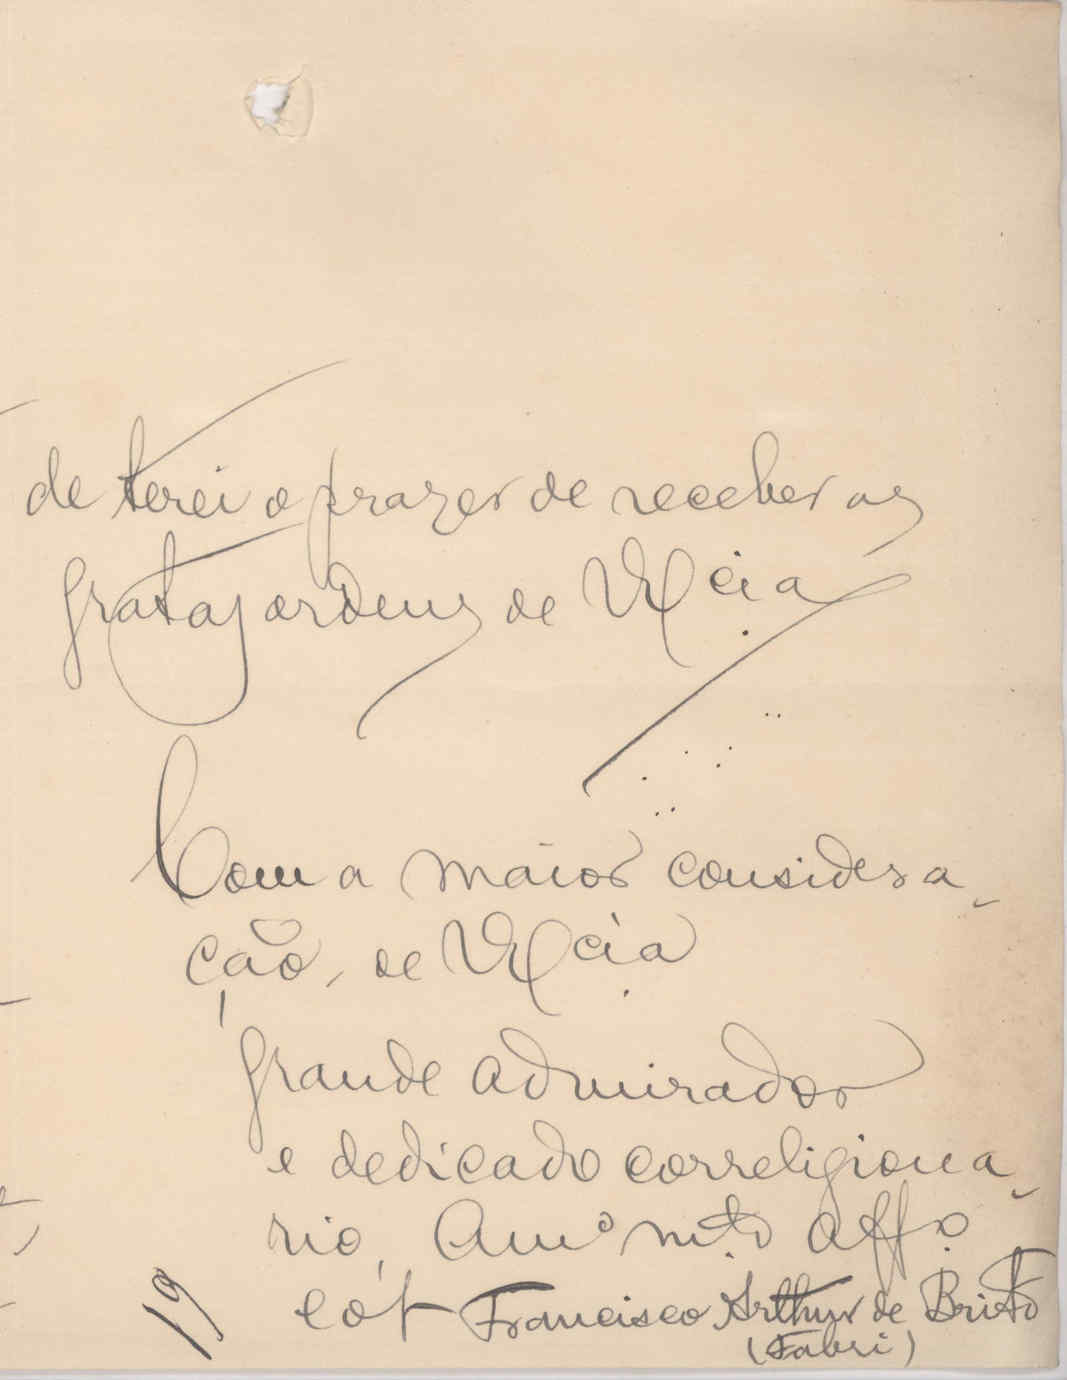 de terei o prazer de receber as
gratas ordens de V Excia
Com a maior considera-
ção, de V Excia
grande admirador
e dedicado correligiona-
rio, Amº m.to aff.o
Francisco Arthur de Brito
(Fabri)
19